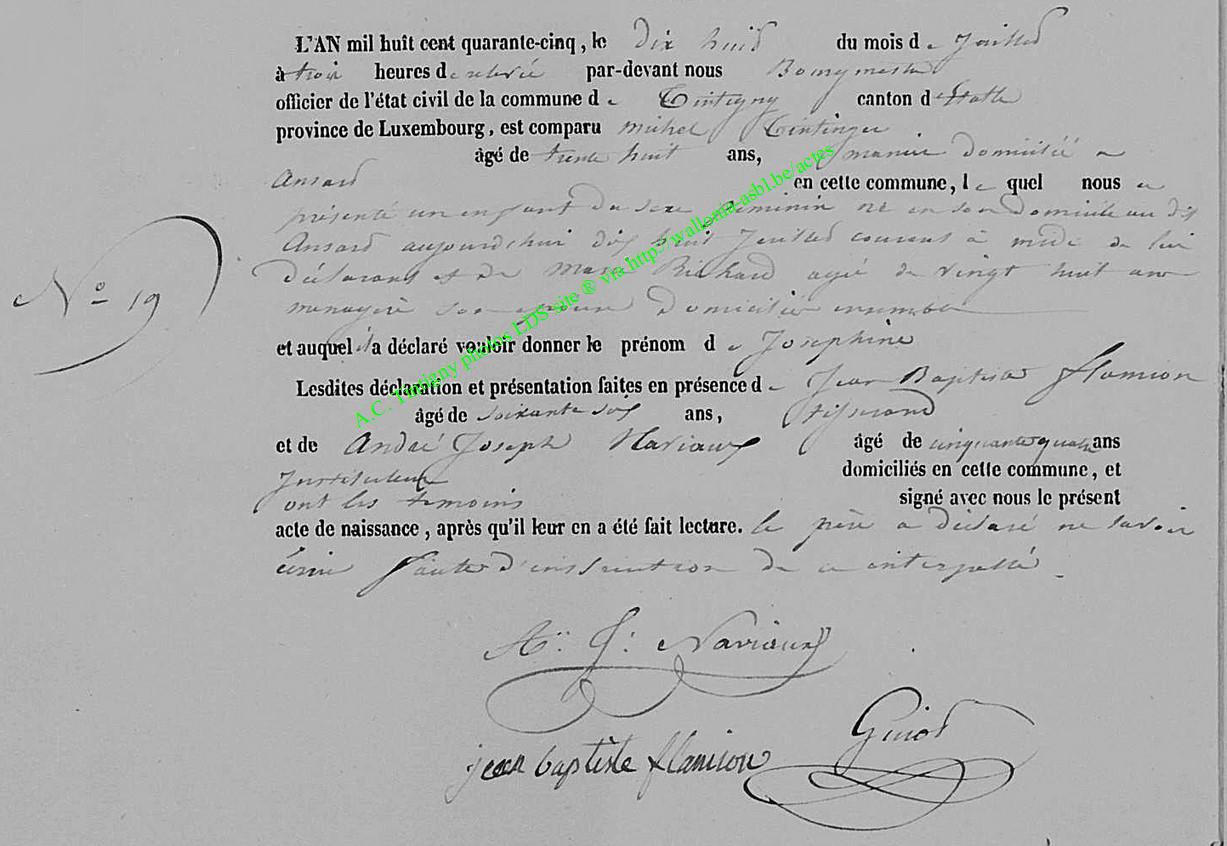 L'AN mil huit cent quarante-cinq, le dix huit du mois de Juillet
à trois heures de relevée par-devant nous Bourgmestre
officier de l'état civil de la commune de Tintigny canton d'Etalle
province de Luxembourg, est comparu Michel Tintinger
âgé de trente huit ans, domicilié a
Ansart en cette commune, lequel nous a
présenté un enfant du sexe féminin né en son domicile au dit
Ansart aujourdhui dix huit Juillet courant à midi de lui
déclarant et de Marie Richard agée de vingt huit ans
menagère son epouse domiciliés ensemble
et auquel il a déclaré vouloir donner le prénom de Josephine
Lesdites déclaration et présentation faites en présence de Jean Baptiste flamion
âgé de soixante six ans, tisserand
et de André Joseph Naviaux âgé de cinquante quatre ans
Instituteur domiciliés en cette commune, et
ont les temoins signé avec nous le présent
acte de naissance, après qu'il leur en a été fait lecture. le père a déclaré ne savoir
écrire faute d'instruction de ce interpellé.
N° 19
A. J. Naviaux
jean baptiste flamion
A.C. Tintigny photos LDS site ® via http://wallonia-asbl.be/actes